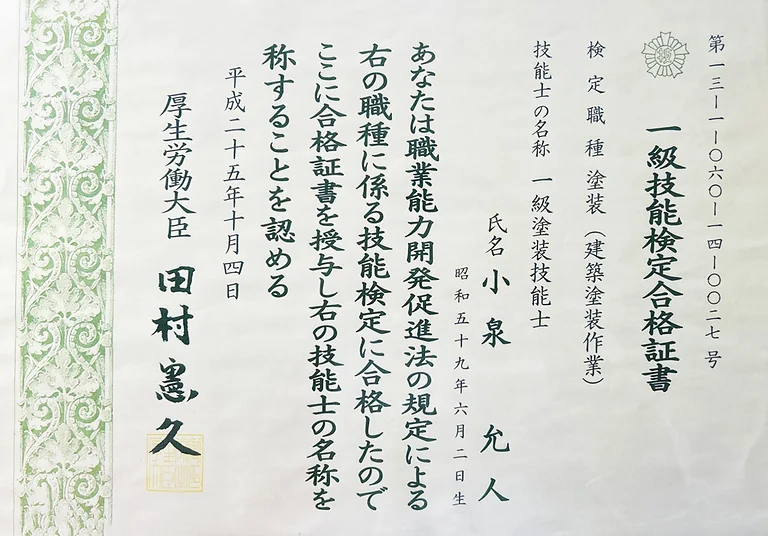 第一三―一―〇六〇―一四―〇〇二七号
一級技能検定合格証書
検定職種 塗装(建築塗装作業)
技能士の名称 一級塗装技能士
氏名 小泉 允人
昭和五十九年六月二日生
あなたは職業能力開発促進法の規定による
右の職種に係る技能検定に合格したので
ここに合格証書を授与し右の技能士の名称を
称することを認める
平成二十五年十月四日
厚生労働大臣 田村憲久